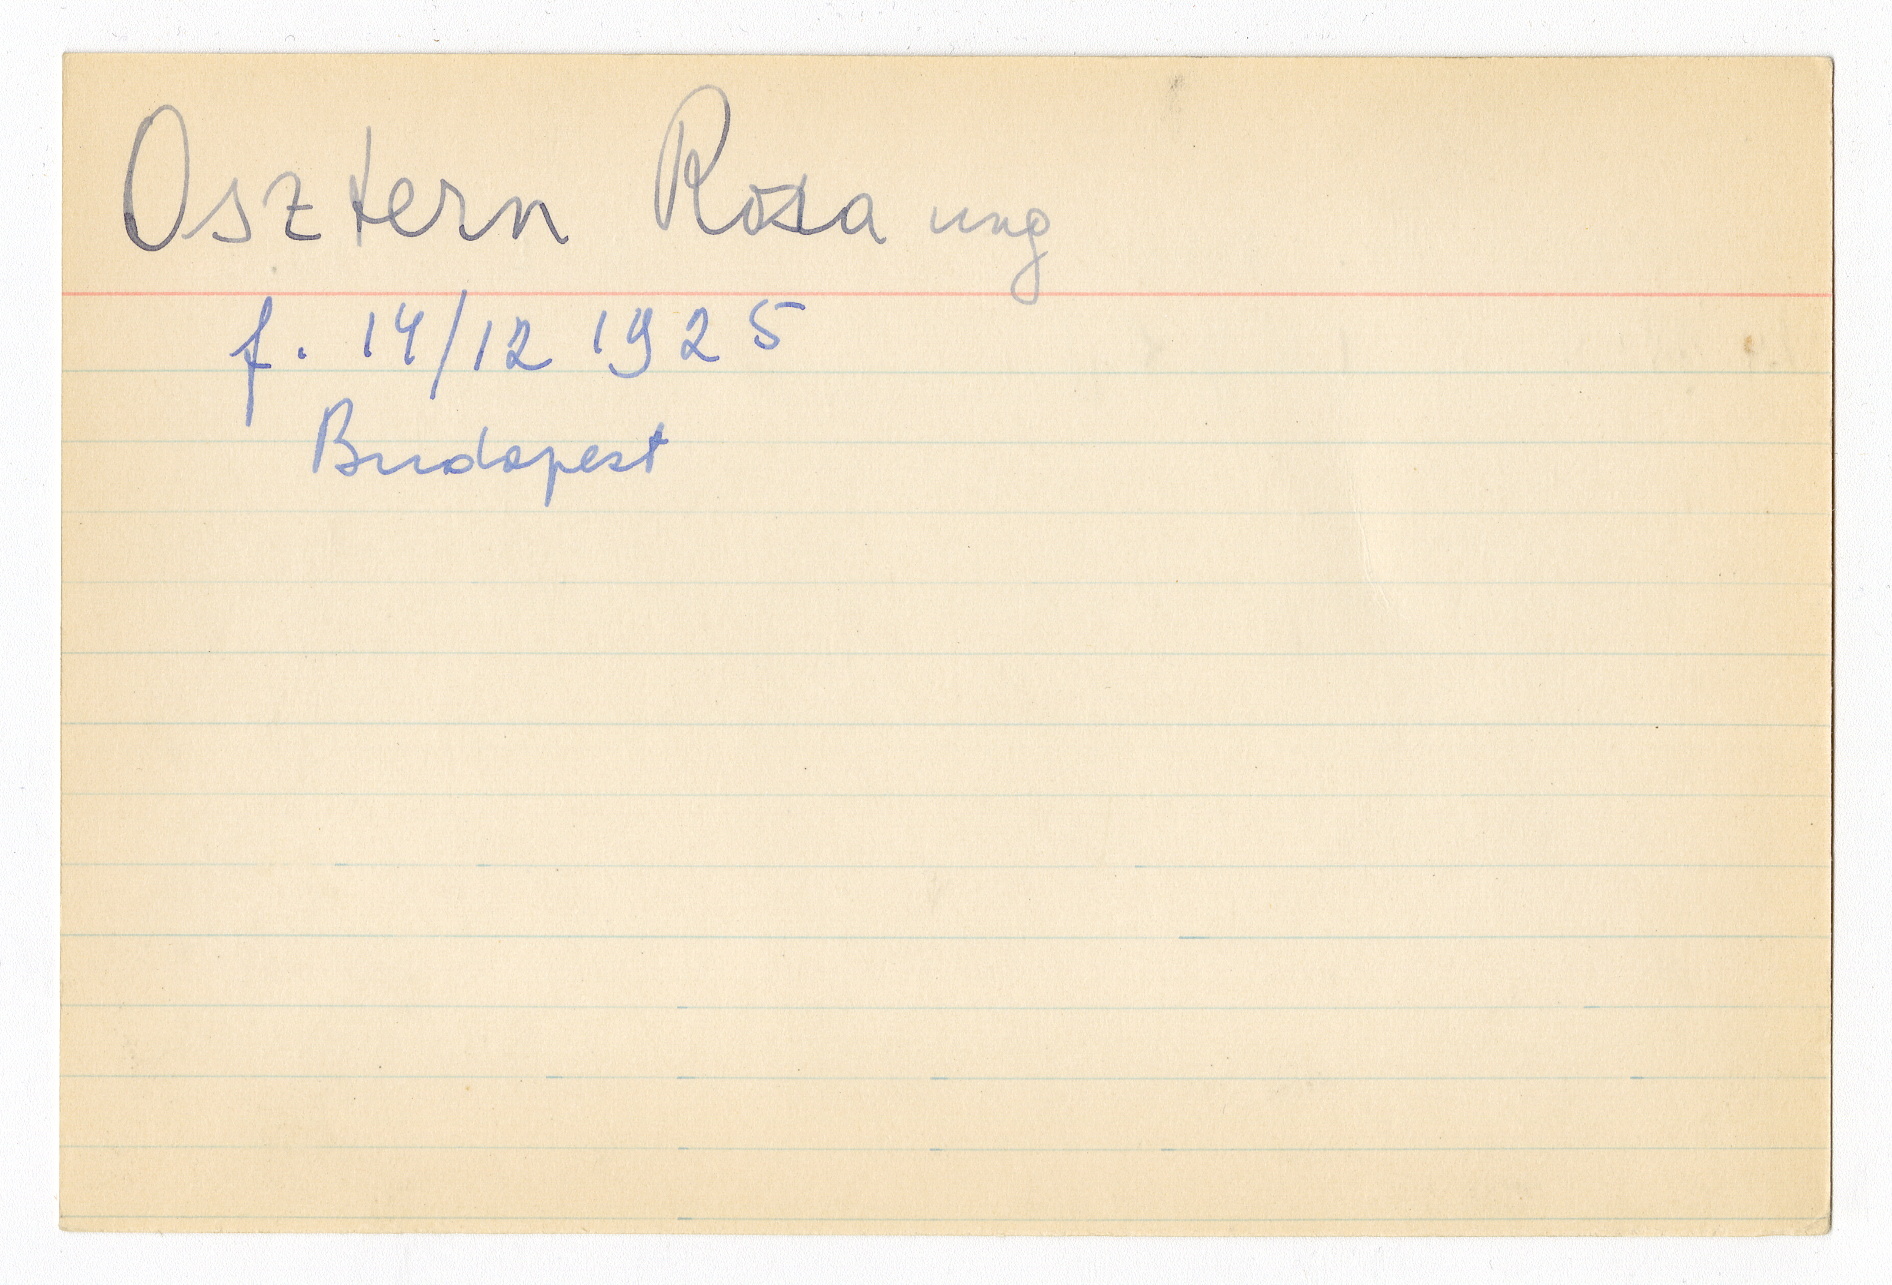 Osztern Rósa ung
f. 14/12 1925
Budapest